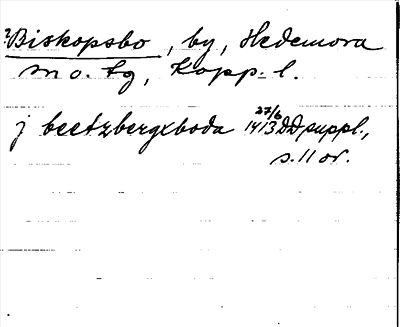 ?Biskopsbo, by, Hedemora
sn o. tg, Kopp. l.
j beetzbergxboda 27/6 1413 DD suppl.,
s. 11 or.